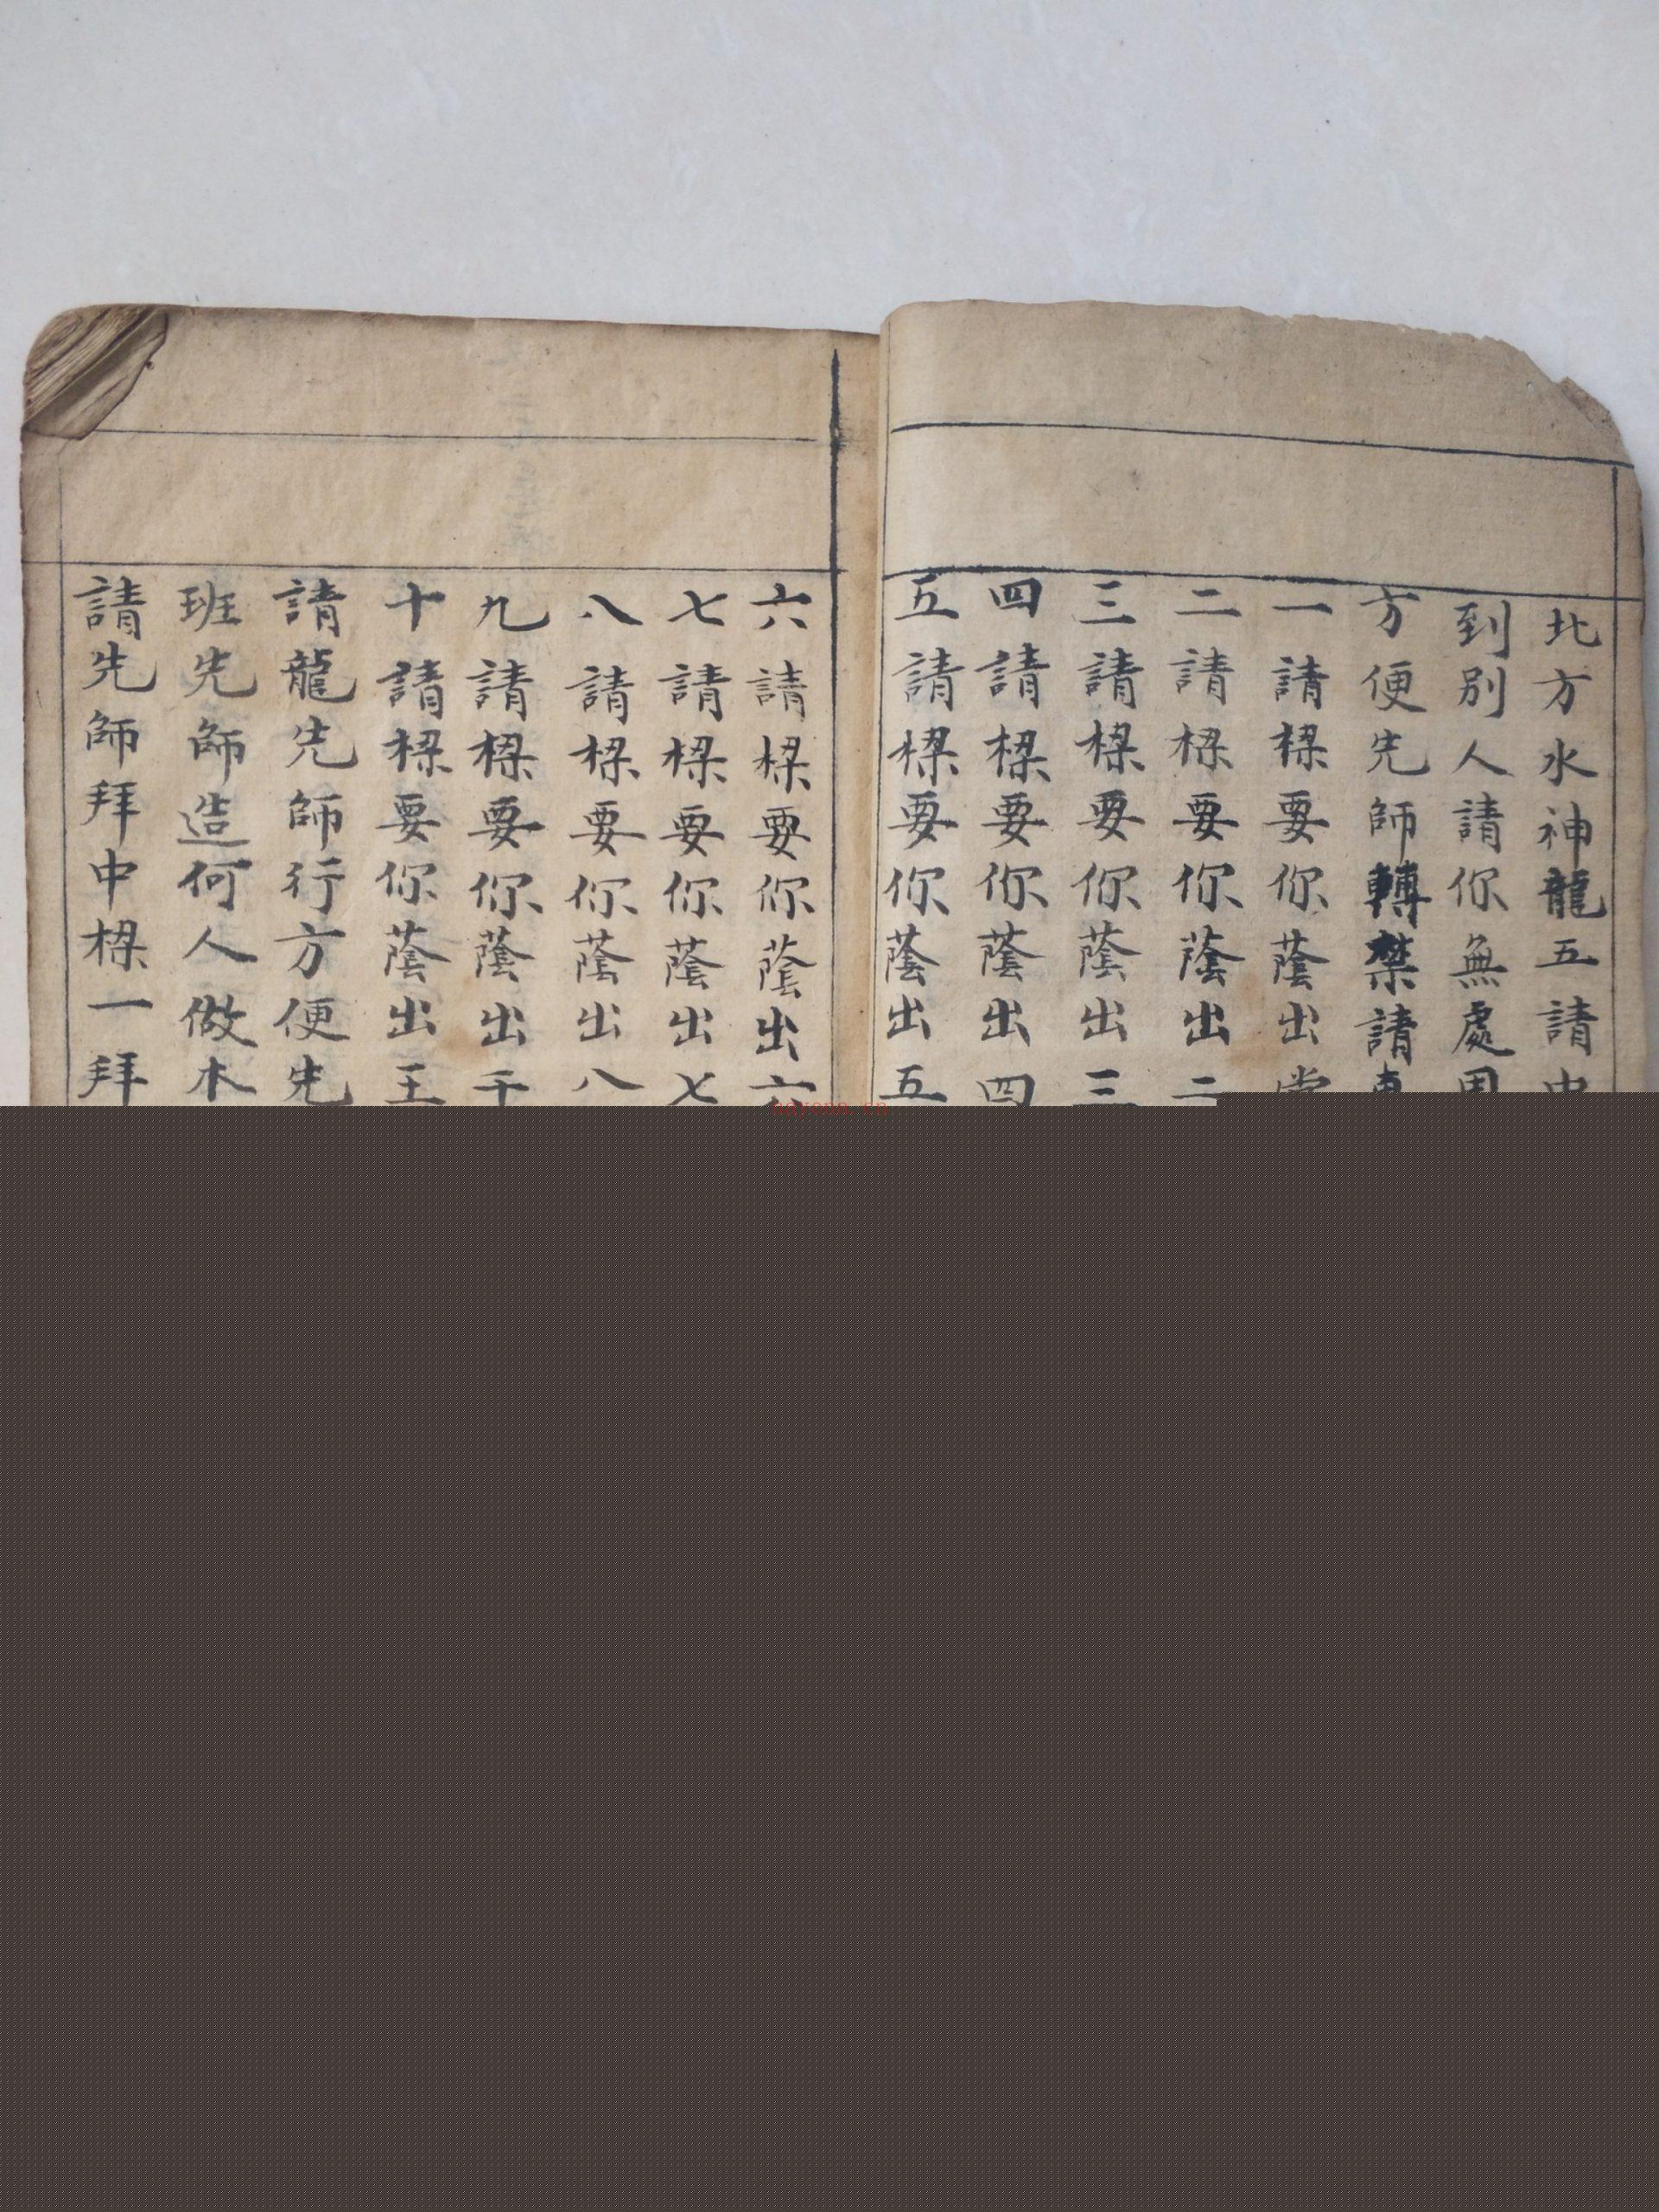 北方水神龍五請
到別人請你無處
方便先師轉禁請
一請樑要你蔭出
二請樑要你蔭出二
三請樑要你蔭出三
四請樑要你蔭出四
五請樑要你蔭出五
六請樑要你蔭出六
七請樑要你蔭出七
八請樑要你蔭出八
九請樑要你蔭出
十請樑要你蔭出
請龍先師行方便先
班先師造何人做木
請先師拜中樑一拜